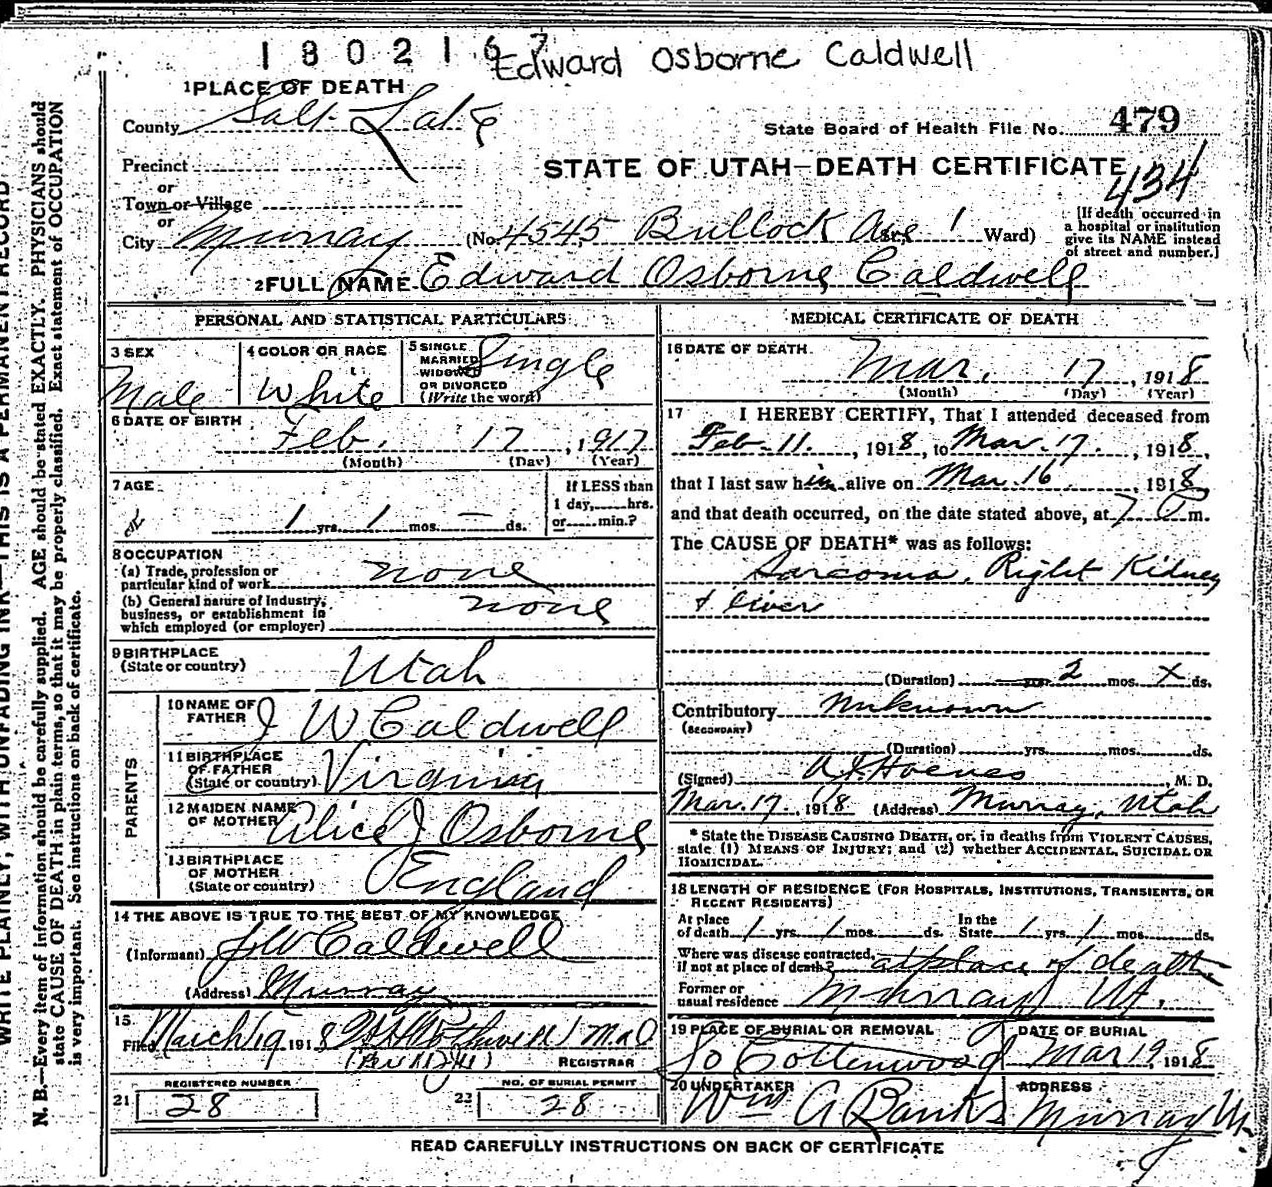 1802167
Edward Osborne Caldwell
1 PLACE OF DEATH
County Salt Lake
State Board of Health File No. 479
Precinct
STATE OF UTAH—DEATH CERTIFICATE
434
or
Town or Village
or
City Murray (No. 4545 Bullock Ave St. 1 Ward)
[If death occurred in
a hospital or institution
give its NAME instead
of street and number.]
2 FULL NAME Edward Osborne Caldwell
PERSONAL AND STATISTICAL PARTICULARS
3 SEX
Male
4 COLOR OR RACE
White
5 SINGLE
MARRIED
WIDOWED
OR DIVORCED
(Write the word)
Single
6 DATE OF BIRTH
Feb. 17, 1917
(Month) (Day) (Year)
7 AGE
1 yrs. 1 mos. — ds.
If LESS than
1 day, hrs.
or min.?
8 OCCUPATION
(a) Trade, profession or
particular kind of work none
(b) General nature of Industry,
business, or establishment in
which employed (or employer) none
9 BIRTHPLACE
(State or country) Utah
PARENTS
10 NAME OF
FATHER J W Caldwell
11 BIRTHPLACE
OF FATHER
(State or country) Virginia
12 MAIDEN NAME
OF MOTHER Alice J Osborne
13 BIRTHPLACE
OF MOTHER
(State or country) England
14 THE ABOVE IS TRUE TO THE BEST OF MY KNOWLEDGE
(Informant) J W Caldwell
(Address) Murray
15
Filed March 19 1918 M.D
REGISTRAR
REGISTERED NUMBER
21 28
NO. OF BURIAL PERMIT
22 28
MEDICAL CERTIFICATE OF DEATH
16 DATE OF DEATH
Mar. 17, 1918
(Month) (Day) (Year)
17 I HEREBY CERTIFY, That I attended deceased from
Feb. 11, 1918, to Mar. 17, 1918,
that I last saw him alive on Mar. 16 1918
and that death occurred, on the date stated above, at 7 m.
The CAUSE OF DEATH* was as follows:
Sarcoma, Right Kidney
& liver
(Duration) yrs. 2 mos. x ds.
Contributory unknown
(SECONDARY)
(Duration) yrs. mos. ds.
(Signed) M. D.
Mar. 17, 1918 (Address) Murray, Utah
* State the DISEASE CAUSING DEATH, or, in deaths from VIOLENT CAUSES,
state (1) MEANS OF INJURY; and (2) whether ACCIDENTAL, SUICIDAL OR
HOMICIDAL.
18 LENGTH OF RESIDENCE (FOR HOSPITALS, INSTITUTIONS, TRANSIENTS, OR
RECENT RESIDENTS)
At place
of death 1 yrs. 1 mos. ds.
In the
State 1 yrs. 1 mos. ds.
Where was disease contracted,
if not at place of death? at place of death.
Former or
usual residence Murray Ut,
19 PLACE OF BURIAL OR REMOVAL
So Cottonwood
DATE OF BURIAL
Mar 19, 1918
20 UNDERTAKER
Wm A Banks
ADDRESS
Murray Ut.
READ CAREFULLY INSTRUCTIONS ON BACK OF CERTIFICATE
WRITE PLAINLY, WITH UNFADING INK—THIS IS A PERMANENT RECORD
N. B.—Every item of Information should be carefully supplied. AGE should be stated EXACTLY. PHYSICIANS should
state CAUSE OF DEATH in plain terms, so that it may be properly classified. Exact statement of OCCUPATION
is very important. See instructions on back of certificate.